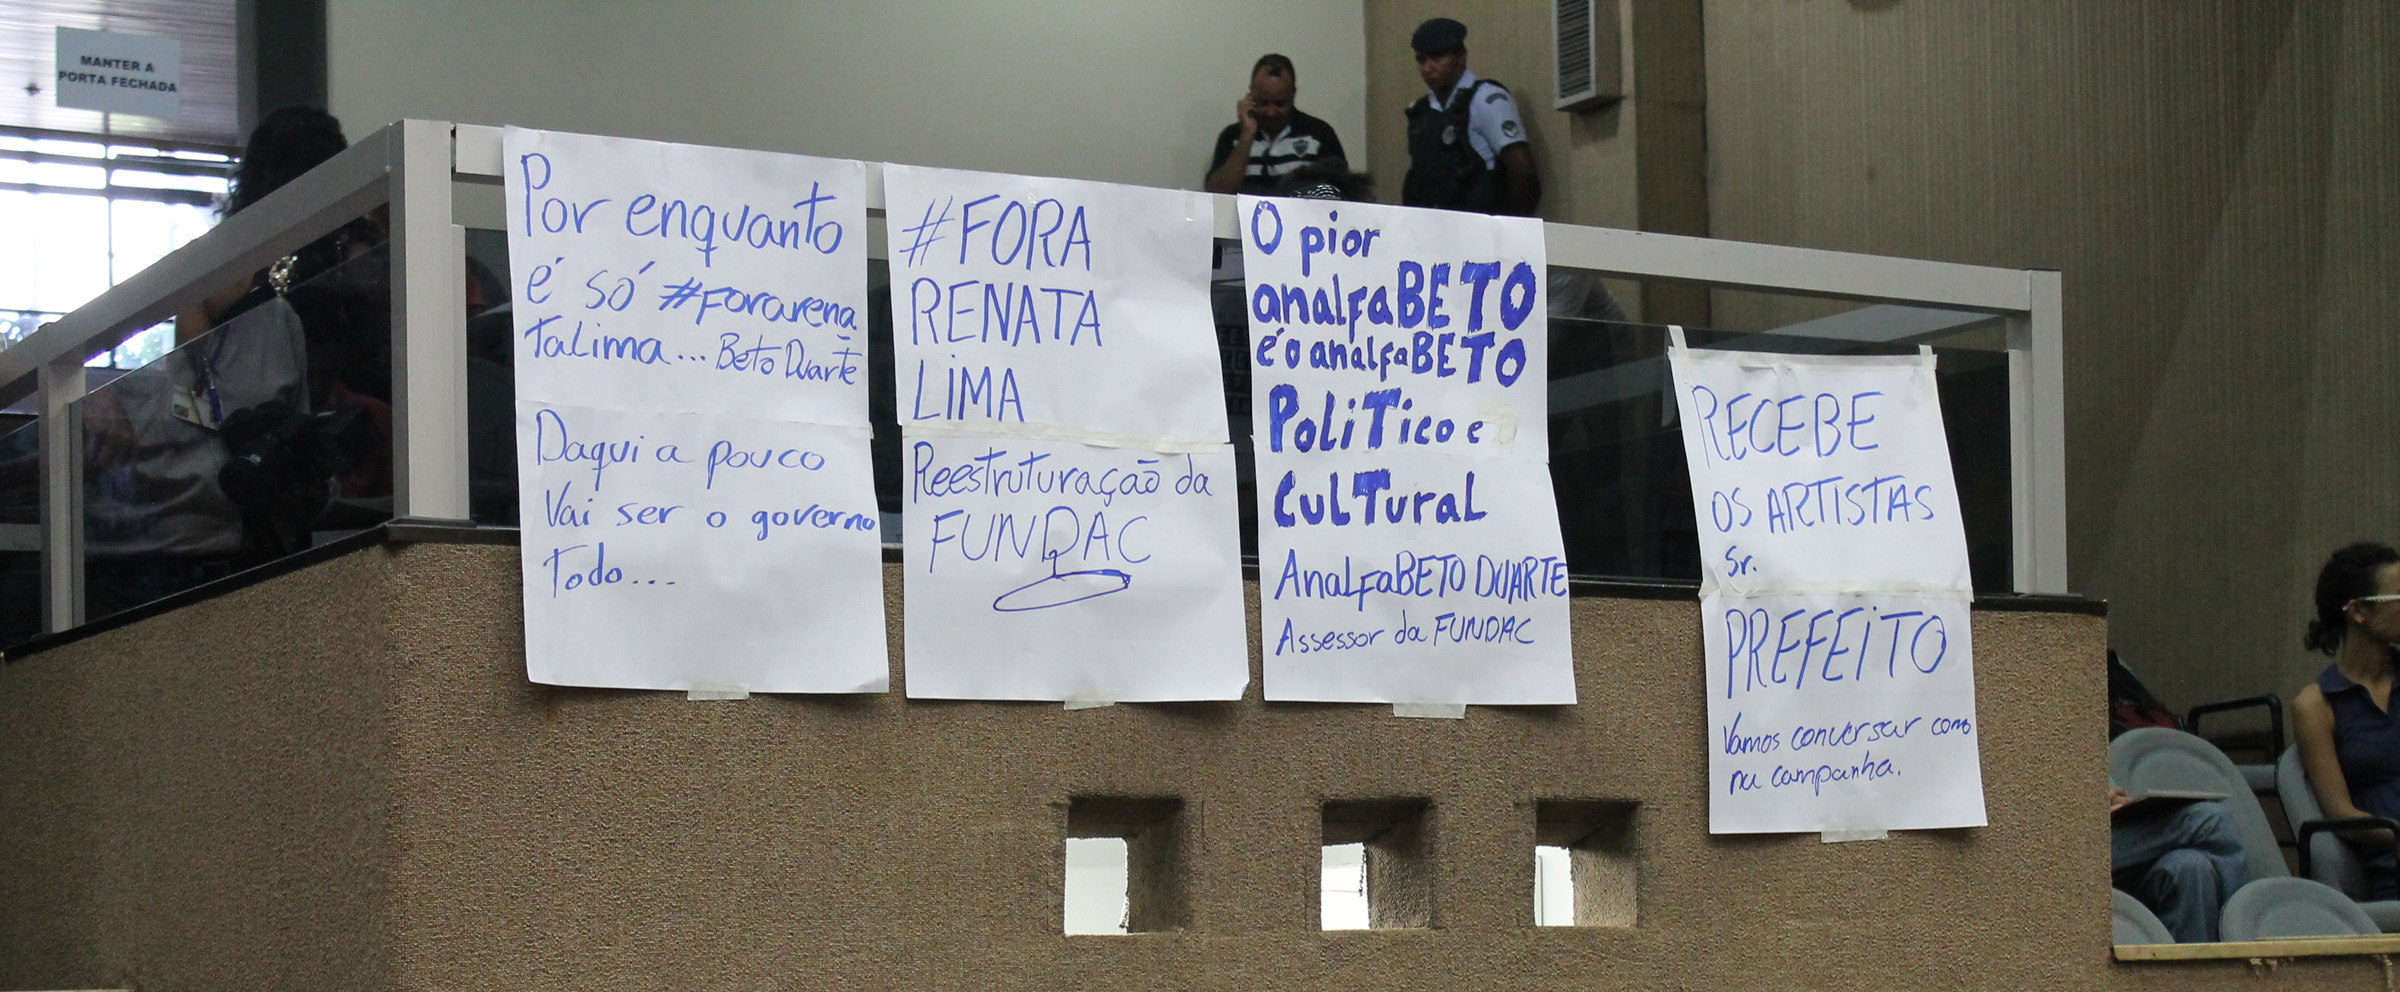 MANTER A
PORTA FECHADA
Por enquanto
é só #Forarena
TaLima... Beto Duarte
Daqui a pouco
Vai ser o governo
Todo...
#FORA
RENATA
LIMA
Reestruturação da
FUNDAC
O pior
analfaBETO
é o analfaBETO
PoliTico e
CulTural
AnalfaBETO DUARTE
Assessor da FUNDAC
RECEBE
OS ARTISTAS
Sr.
PREFEITO
Vamos conversar como
na campanha.